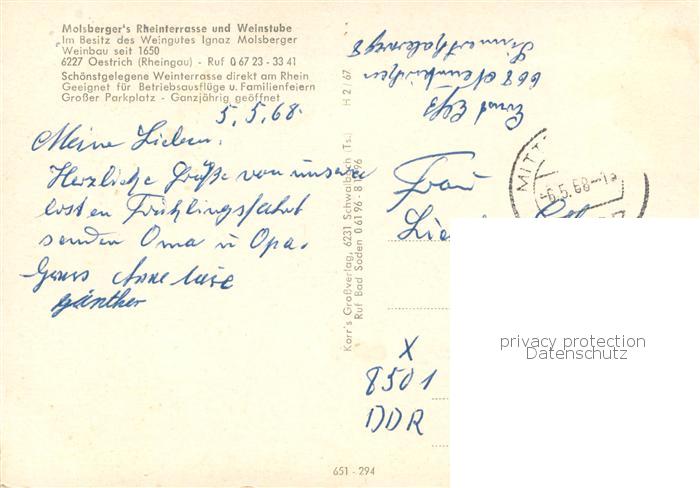 Molsberger's Rheinterrasse und Weinstube
Im Besitz des Weingutes Ignaz Molsberger
Weinbau seit 1650
6227 Oestrich (Rheingau) - Ruf 0 67 23 - 33 41
Schönstgelegene Weinterrasse direkt am Rhein
Geeignet für Betriebsausflüge u. Familienfeiern
Großer Parkplatz - Ganzjährig geöffnet
5.5.68.
Meine Lieben.
Herzliche Grüße von unserer
ersten Frühlingsfahrt
senden Oma u Opa.
Gruss Anneliese
Günther
H 2/67
Korr's Großverlag, 6231 Schwalbach (Ts.)
Ruf Bad Soden 0 61 96 - 8 16 96
Ernst
668 Neunkirchen
8
MITT
-6.5.68-
Frau
X
8501
DDR
privacy protection
Datenschutz
651 - 294